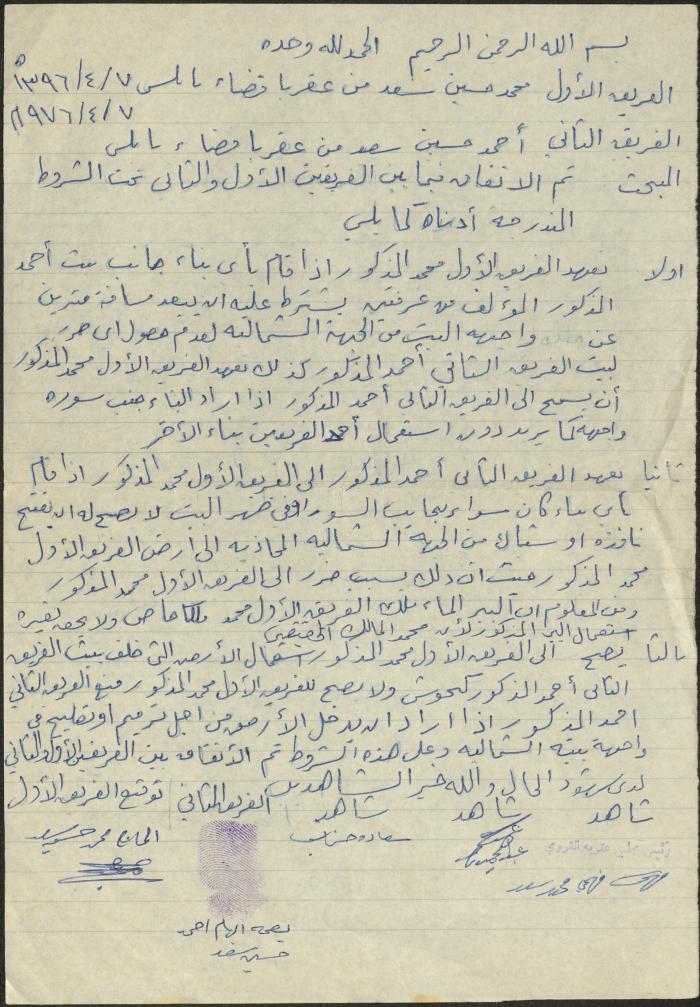 بسم الله الرحمن الرحيم الحمد لله وحده
الفريق الأول محمد حسين سعد من عقربا قضاء نابلس ١٣٩٦/٤/٧هـ
١٩٧٦/٤/٧م
الفريق الثاني أحمد حسين سعد من عقربا قضاء نابلس
المبحث تم الاتفاق فيما بين الفريقين الأول والثاني تحت الشروط
المندرجة أدناه كما يلي
اولا تعهد الفريق الأول محمد المذكور اذا قام بأي بناء بجانب بيت أحمد
المذكور المؤلف من غرفتين يشترط عليه ان يبعد مسافة مترين
عن واجهة البيت من الجهة الشمالية لعدم حصول اي ضرر
لبيت الفريق الثاني أحمد المذكور كذلك تعهد الفريق الأول محمد المذكور
أن يسمح الى الفريق الثاني أحمد المذكور اذا اراد البناء جنب سوره
واجهة كما يريد دون استعمال أحد الفريقين بناء الآخر
ثانيا تعهد الفريق الثاني أحمد المذكور الى الفريق الأول محمد المذكور اذا قام
بأي بناء كان سواء بجانب السور او في ظهر البيت لا يصح له ان يفتح
نافذة او شباك من الجهة الشمالية المحاذيه الى أرض الفريق الأول
محمد المذكور حيث ان ذلك يسبب ضرر الى الفريق الأول محمد المذكور
ومن المعلوم ان البير الماء ملك الفريق الأول محمد ملكا خاص ولا يحق لغيره
استعمال البير المذكور لأن محمد المالك الحقيقي
ثالثا يصح الى الفريق الأول محمد المذكور استعمال الأرض التي خلف بيت الفريق
الثاني أحمد المذكور كحوش ولا يصح للفريق الأول محمد المذكور منع الفريق الثاني
احمد المذكور اذا اراد ان يدخل الأرض من اجل ترميم او تصليح في
واجهة بيته الشمالية وعلى هذه الشروط تم الأتفاق بين الفريقين الأول والثاني
لدى شهود الحال والله خير الشاهدين
شاهد شاهد شاهد الفريق الثاني توقيع الفريق الأول
سعاده حسن الحاج محمد حسين سعد
رئيس مجلس عقربه القروي
فهمي محمد سعد
بصمة ابهام احمد
حسين سعد